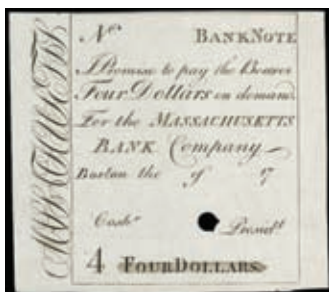 No BANK NOTE
I Promise to pay the Bearer
Four Dollars on demand.
For the MASSACHUSETTS
BANK Company
Boston the of 17
Cashr
Presidt
4 FOUR DOLLARS